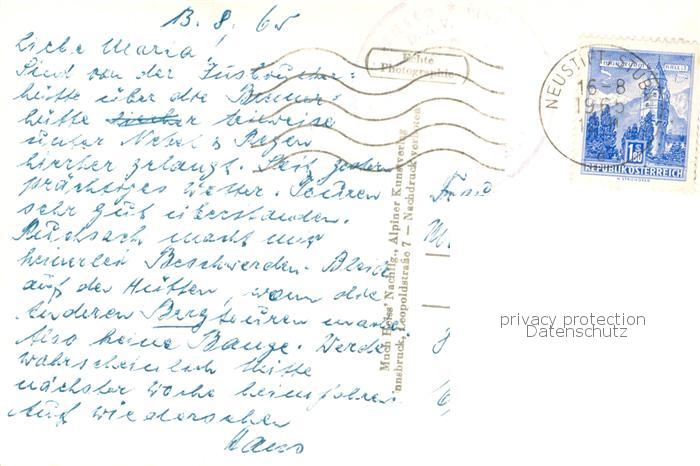 13. 8. 65
Liebe Maria!
Sind von der Innsbrucker-
hütte über die Bremer-
hütte teilweise
unter Nebel & Regen
hierher gelangt. Seit gestern
prächtiges Wetter. Touren
sehr gut überstanden.
Rucksack macht mir
keinerlei Beschwerden. Bleibe
auf den Hütten, wenn die
anderen Bergtouren machen.
Also keine Bange. Werde
wahrscheinlich Mitte
nächster Woche heimfahren.
Auf wiedersehen
Hans
Echte
Photographie
Much Heiss' Nachflg., Alpiner Kunstverlag
Innsbruck, Leopoldstraße 7 — Nachdruck verboten
Frau
NEUSTIFT
16-8
1965
1.80
REPUBLIK ÖSTERREICH
privacy protection
Datenschutz